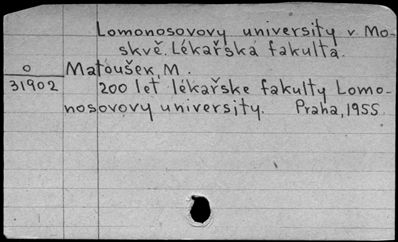 Lomonosovovy university v Mo-
skvě. Lékařská fakulta.
o Matoušek, M.
31902 200 let lékařske fakulty Lomo-
nosovovy university. Praha, 1955.